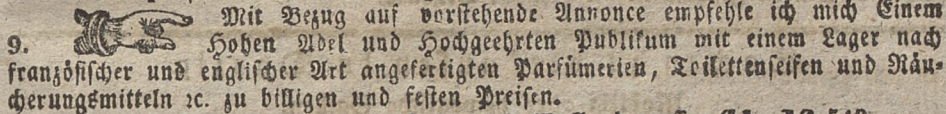 Mit Bezug auf vorstehende Annonce empfehle ich mich Einem
9. Hohen Adel und Hochgeehrten Publikum mit einem Lager nach
französischer und englischer Art angefertigten Parfümerien, Toilettenseifen und Räu-
cherungsmitteln ꝛc. zu billigen und festen Preisen.